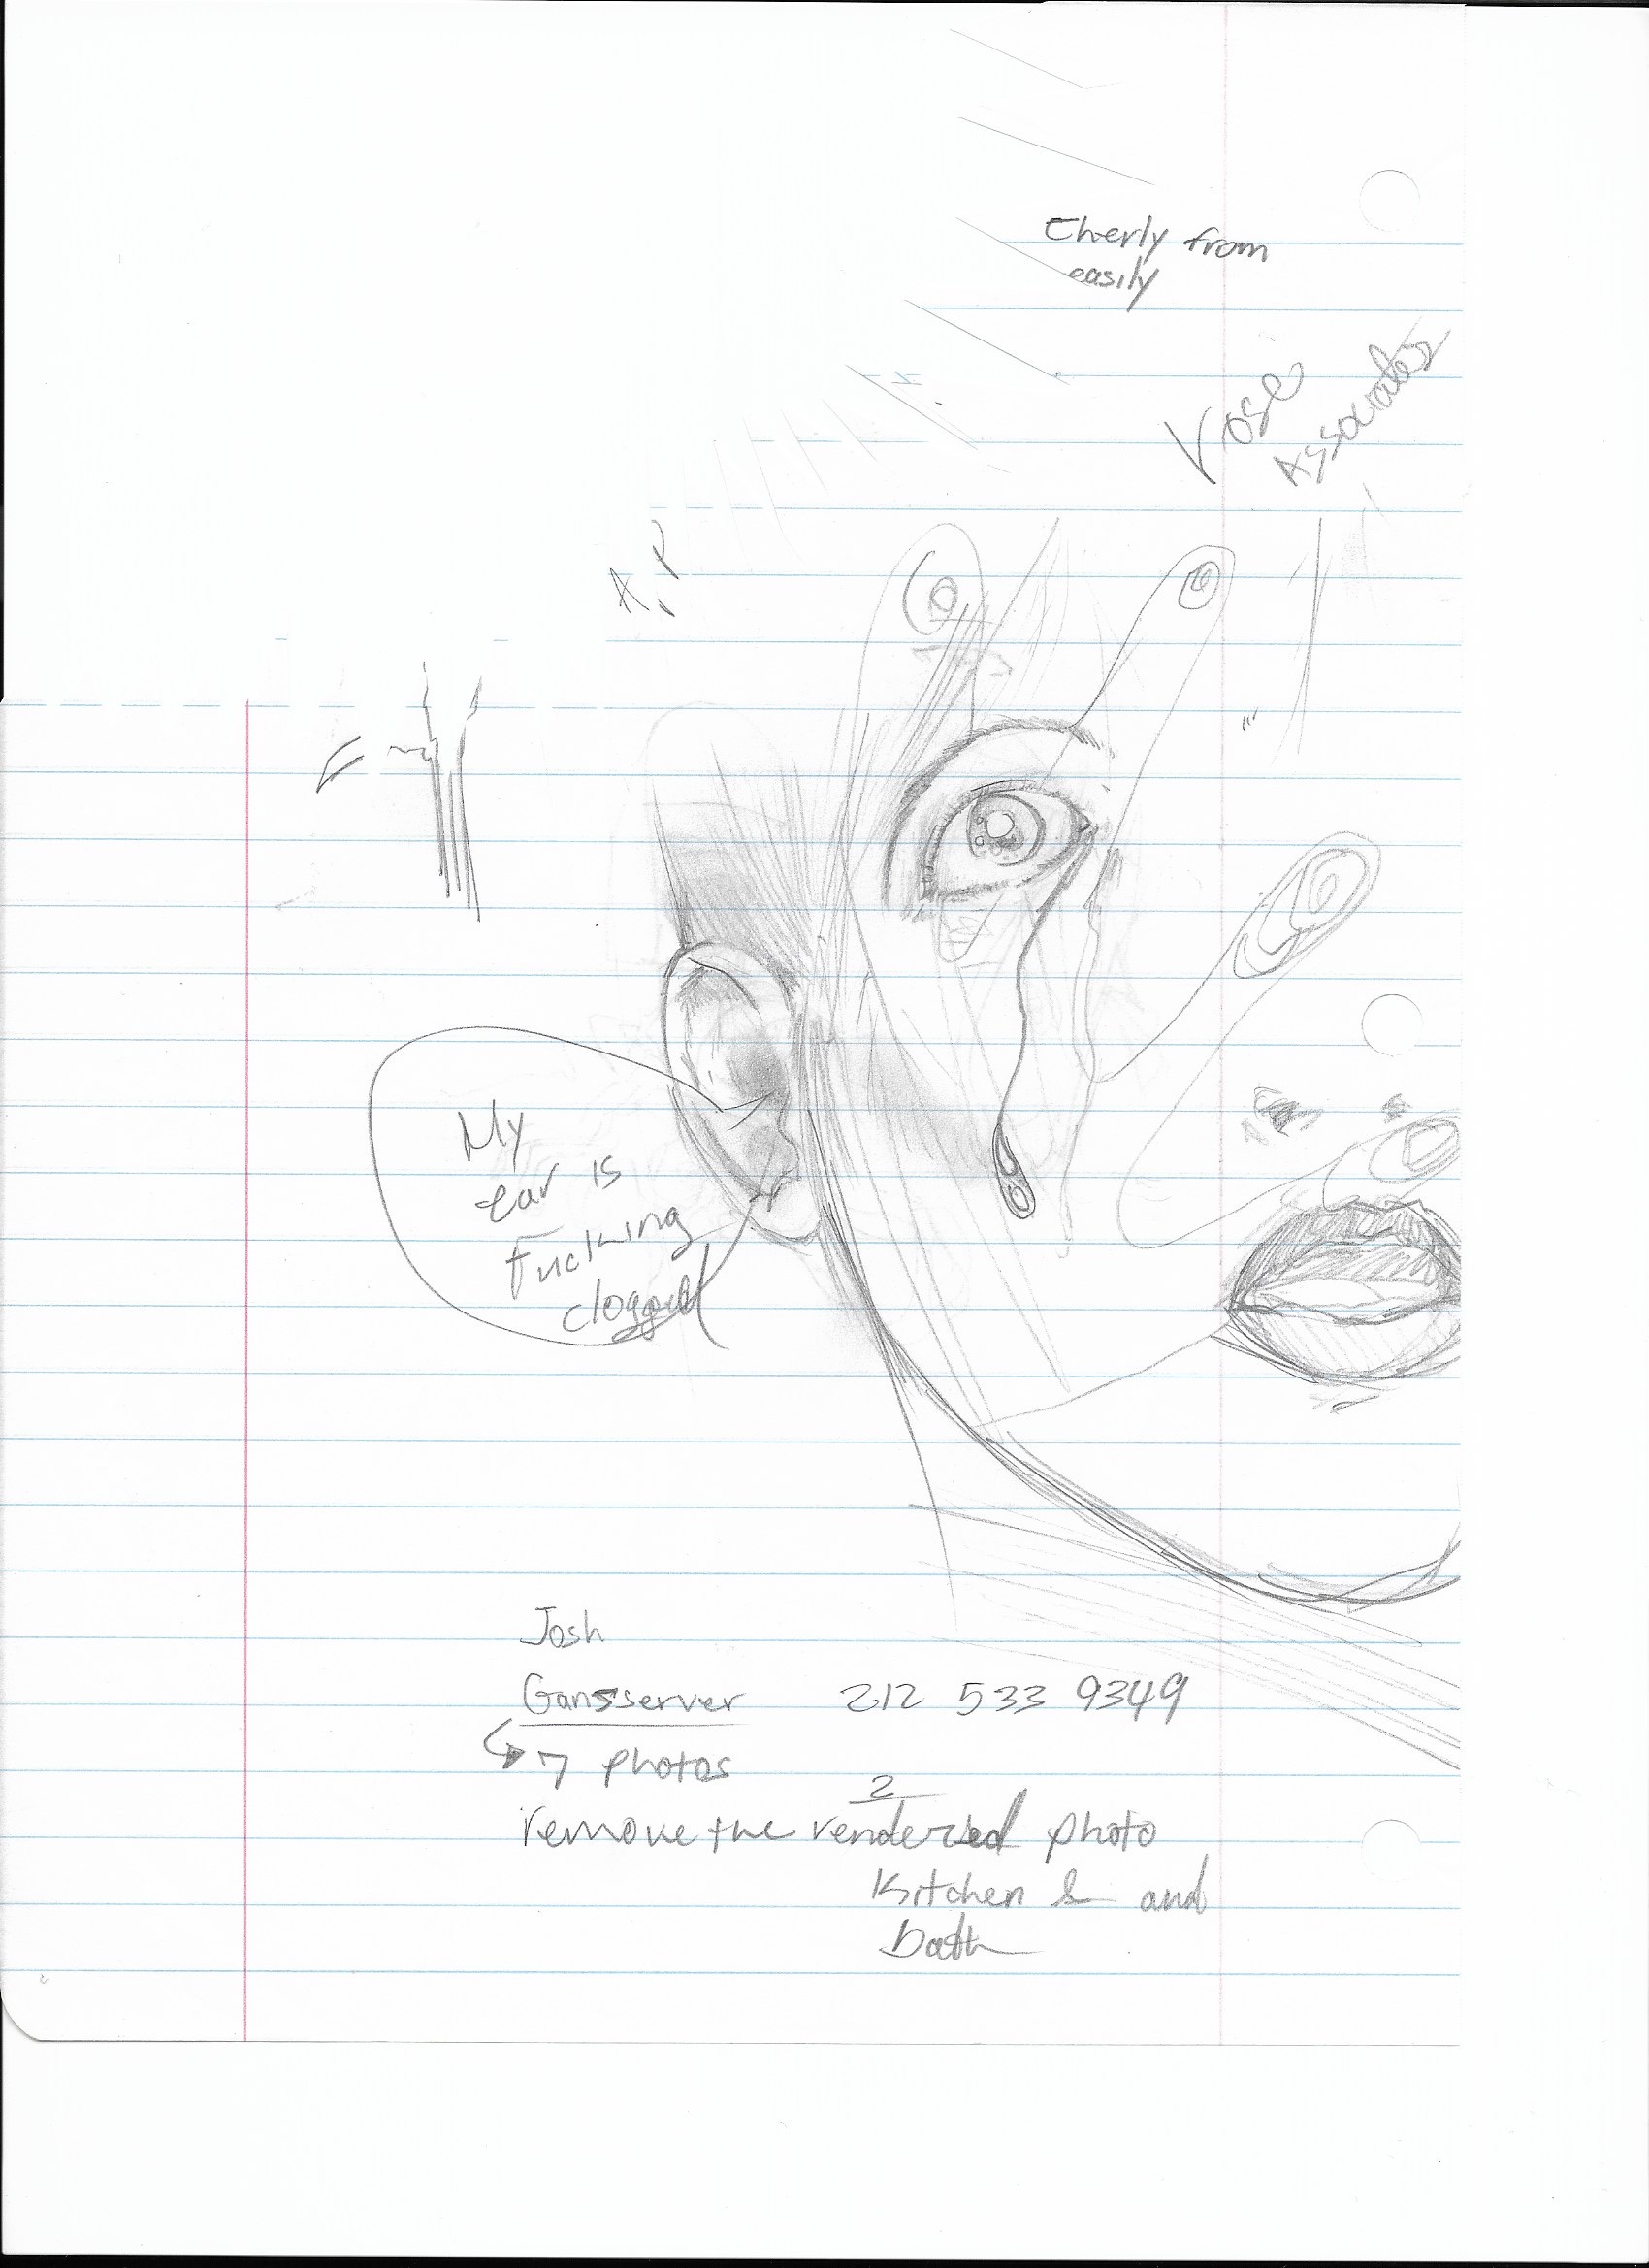 Cherly from
easily
Vose
Associates
A.P
My
ear is
fucking
clogged
Josh
Gansserver 212 533 9349
7 photos
2
remove the rendered photo
Kitchen & and
bath